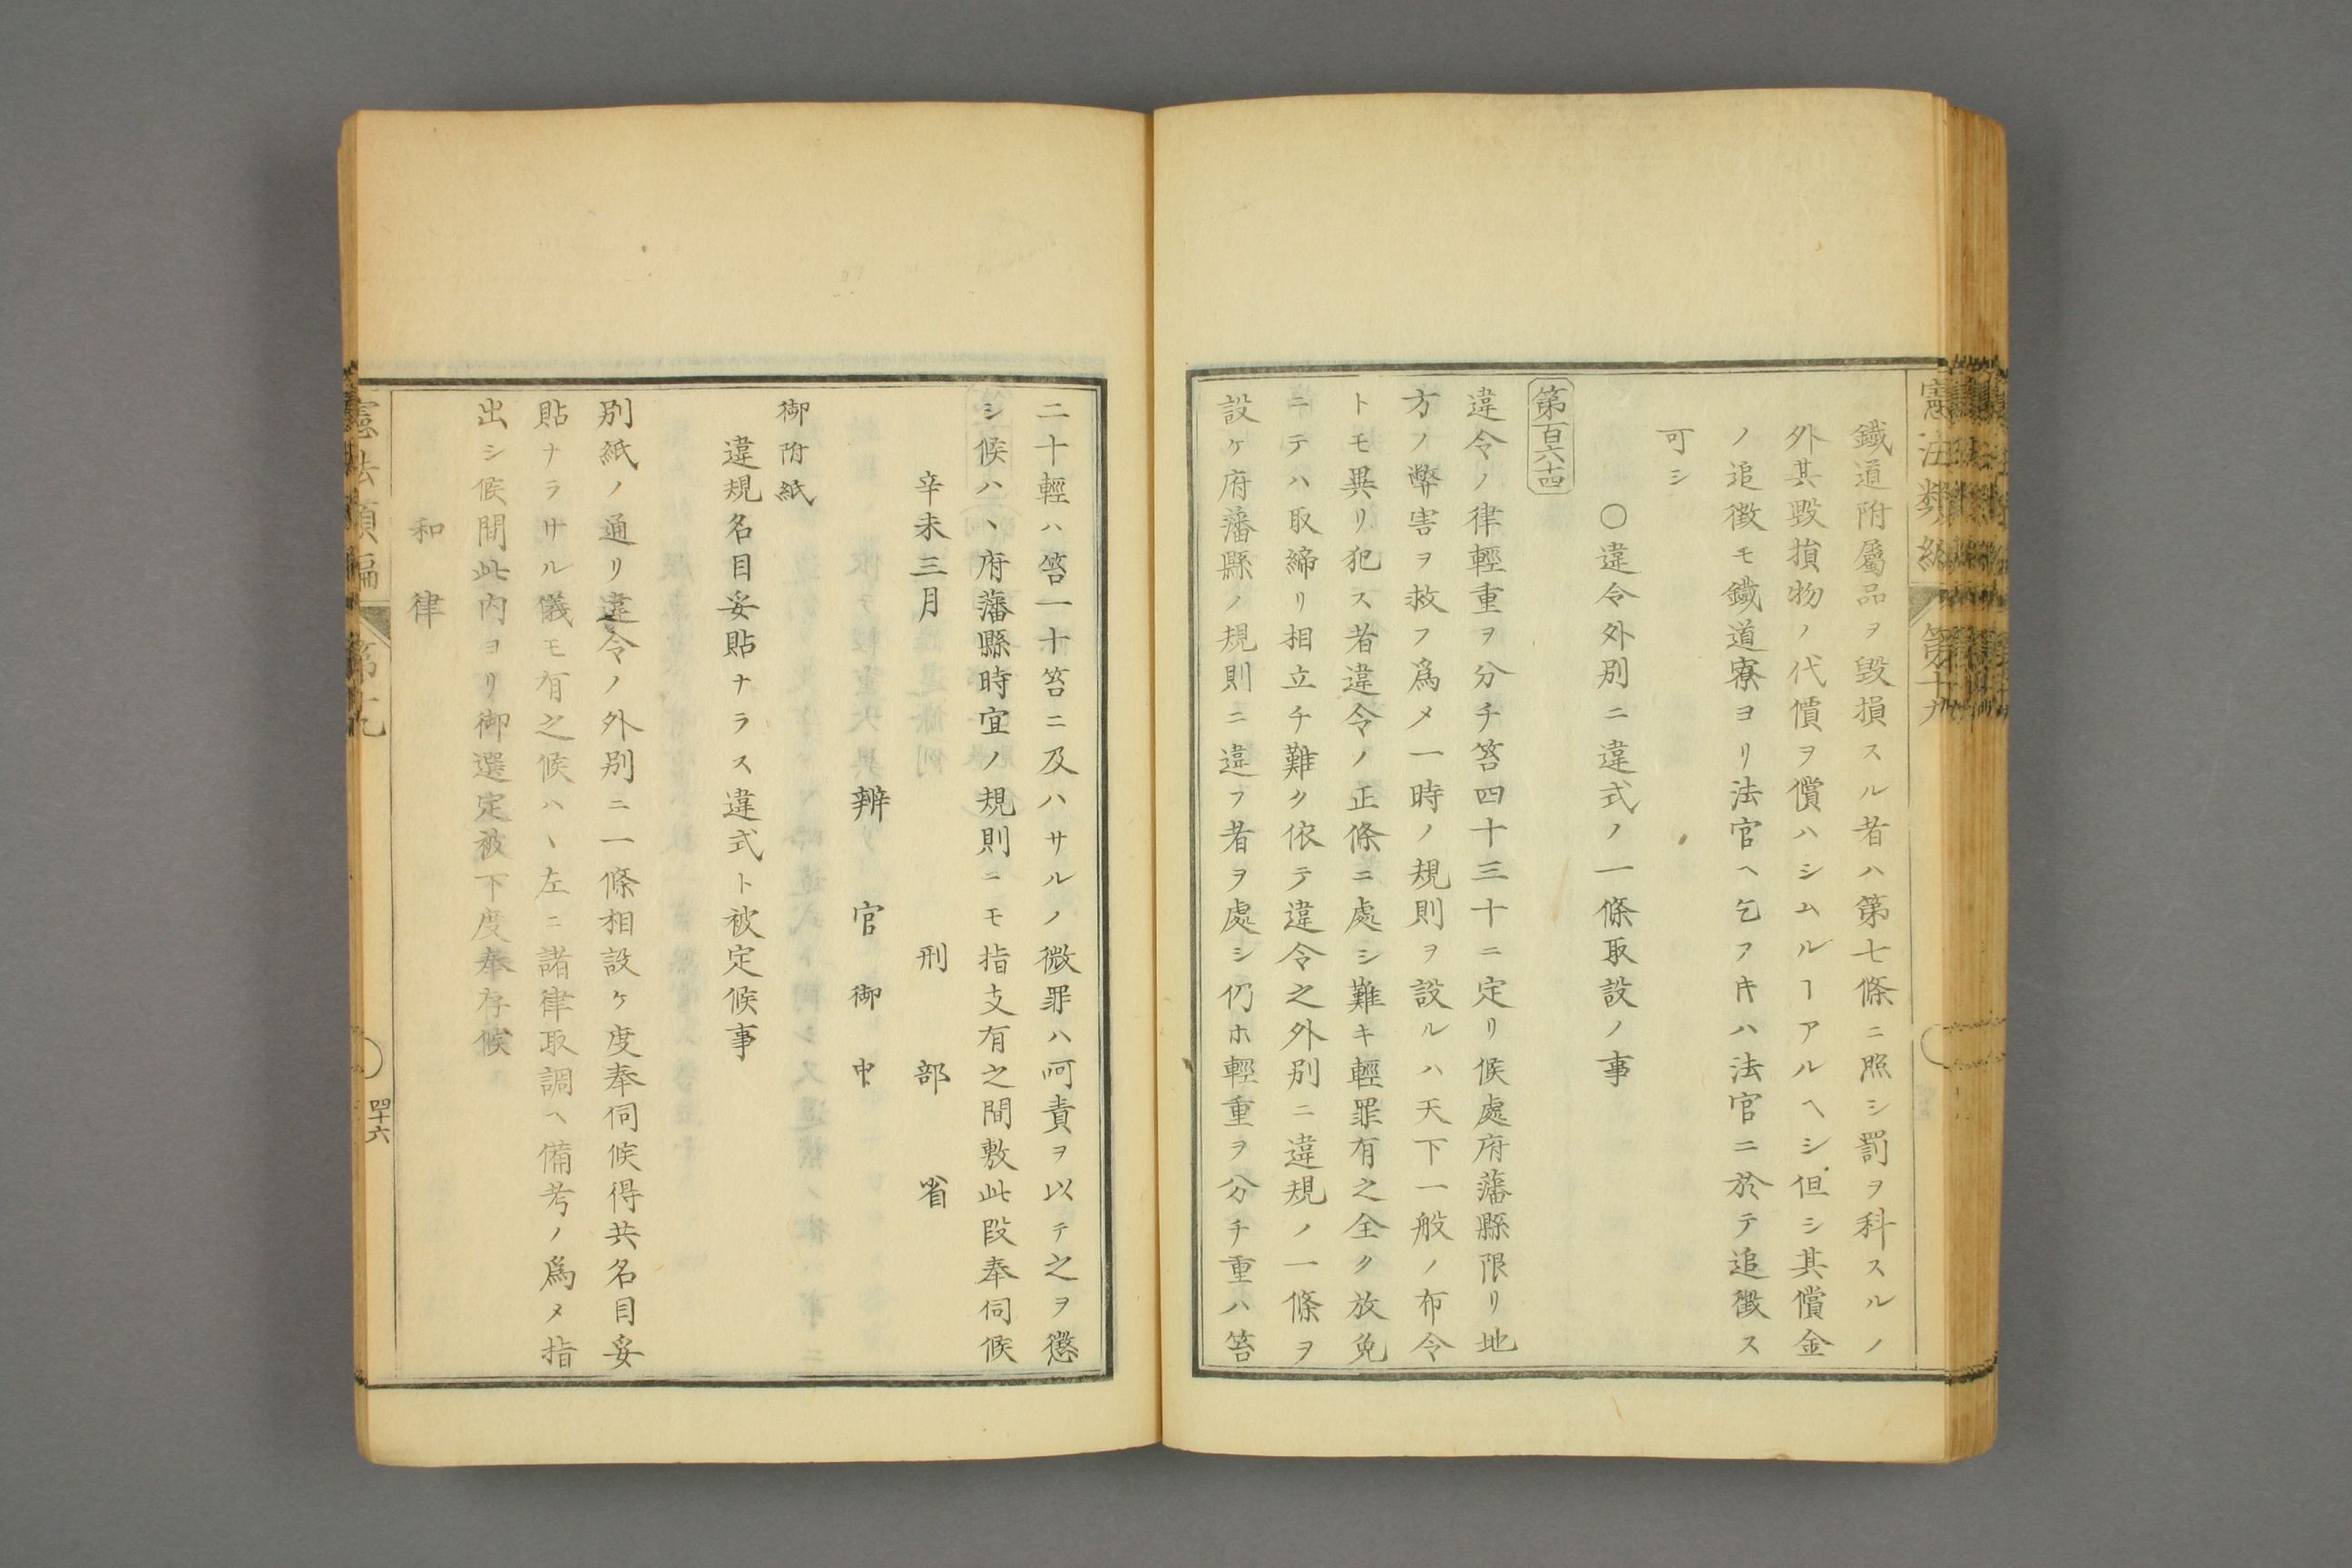 鐵道附屬品ヲ毀損スル者ハ第七條ニ照シ罰ヲ科スルノ
外其毀損物ノ代償ヲ償ハシムルヿアルヘシ但シ其償金
ノ追徴モ鐵道寮ヨリ法官ヘ乞フキハ法官ニ於テ追徴ス
可シ
〇違令外別ニ違式ノ一條取設ノ事
第百六十四
違令ノ律輕重ヲ分チ笞四十三十ニ定リ候處府藩縣限リ地
方ノ弊害ヲ救フ爲メ一時ノ規則ヲ設ルハ天下一般ノ布令
トモ異リ犯ス者違令ノ正條ニ處シ難キ輕罪有之全ク放免
ニテハ取締リ相立チ難ク依テ違令之外別ニ違規ノ一條ヲ
設ケ府藩縣ノ規則ニ違フ者ヲ處シ仍ホ輕重ヲ分チ重ハ笞
憲法類編 第十九
二十輕ハ笞一十笞ニ及ハサルノ微罪ハ呵責ヲ以テ之ヲ懲
シ候ハヽ府藩縣時宜ノ規則ニモ指支有之間敷此段奉伺候
辛未三月 刑部省
辨官御中
御附紙
違規名目妥貼ナラス違式ト被定候事
別紙ノ通リ違令ノ外別ニ一條相設ケ度奉伺候得共名目妥
貼ナラサル儀モ有之候ハヽ左ニ諸律取調ヘ備考ノ爲メ指
出シ候間此内ヨリ御選定被下度奉存候
和律
憲法類編 第十九 四十六